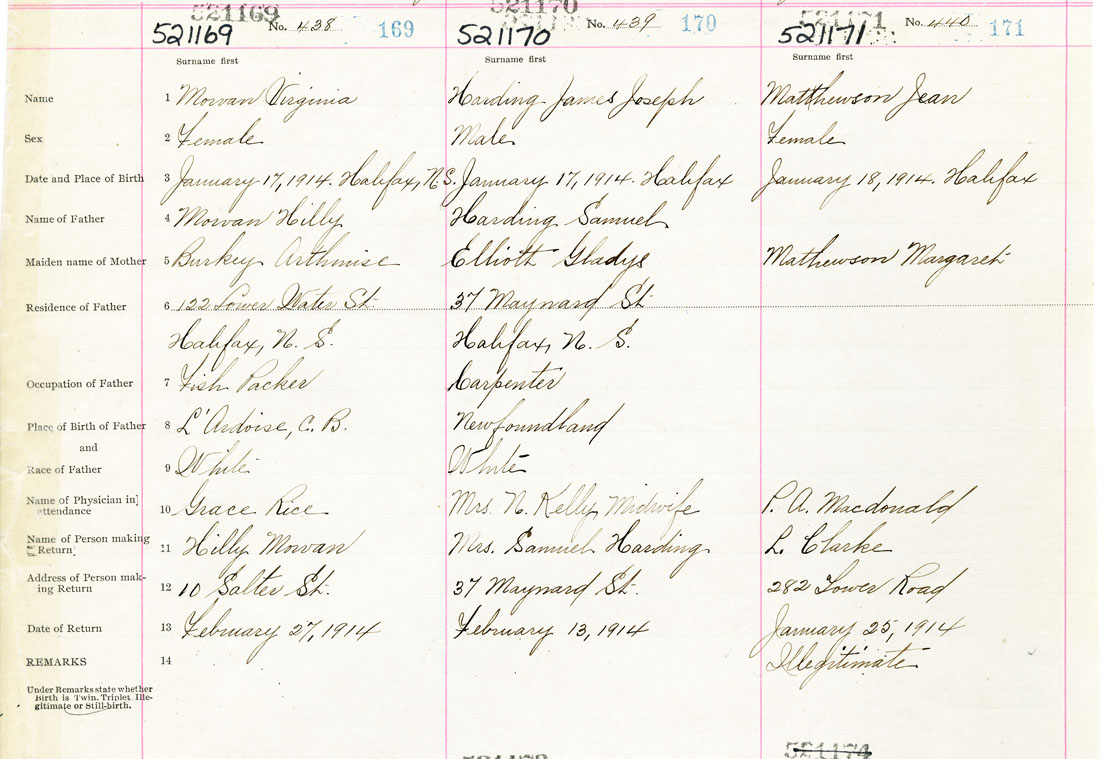 521169 521170 521171
521169 No. 438 169 521170 No. 439 170 521171 No. 440 171
Surname first Surname first Surname first
Name 1 Mowan Virginia Harding James Joseph Matthewson Jean
Sex 2 Female Male Female
Date and Place of Birth 3 January 17, 1914. Halifax, N.S. January 17, 1914. Halifax January 18, 1914. Halifax
Name of Father 4 Mowan Hilly Harding Samuel
Maiden name of Mother 5 Burkey Arthmise Elliott Gladys Mathewson Margaret
Residence of Father 6 122 Lower Water St. 37 Maynard St.
Halifax, N. S. Halifax, N. S.
Occupation of Father 7 Fish Packer Carpenter
Place of Birth of Father 8 L'Ardoise, C. B. Newfoundland
and
Race of Father 9 White White
Name of Physician in]
attendance 10 Grace Rice Mrs. N. Kelly Midwife P. A. Macdonald
Name of Person making
Return 11 Hilly Mowan Mrs. Samuel Harding L. Clarke
Address of Person mak-
ing Return 12 10 Salter St. 37 Maynard St. 282 Tower Road
Date of Return 13 February 27, 1914 February 13, 1914 January 25, 1914
REMARKS 14 Illegitimate
Under Remarks state whether
Birth is Twin, Triplet Ille-
gitimate or Still-birth.
521174